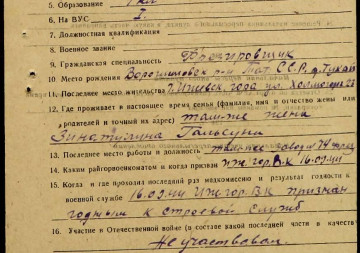 5. Образование 7 кл
6. На ВУС 2.
7. Должностная квалификация
8. Военное звание
9. Гражданская специальность Фрезировщик
10 Место рождения Ворошиловск р-н Тат. ССР, д.
11. Последнее место жительства г. Ижевск, ул.
12. Где проживает в настоящее время семья (фамилия, имя и отчество жены или
родителей и точный их адрес) там же жена
Зинатулина
13. Последнее место работы и должность завод № 74
14. Каким райгорвоенкоматом и когда призван Иж. гор. В.К 16.09.41
15. Когда и где проходил последний раз медкомиссию и результат годности к
военной службе 16.09.41 Иж. гор. В.К признан
годным к строевой служб
16. Участие в Отечественной войне (в составе какой последней части и качестве
Не участвовал.